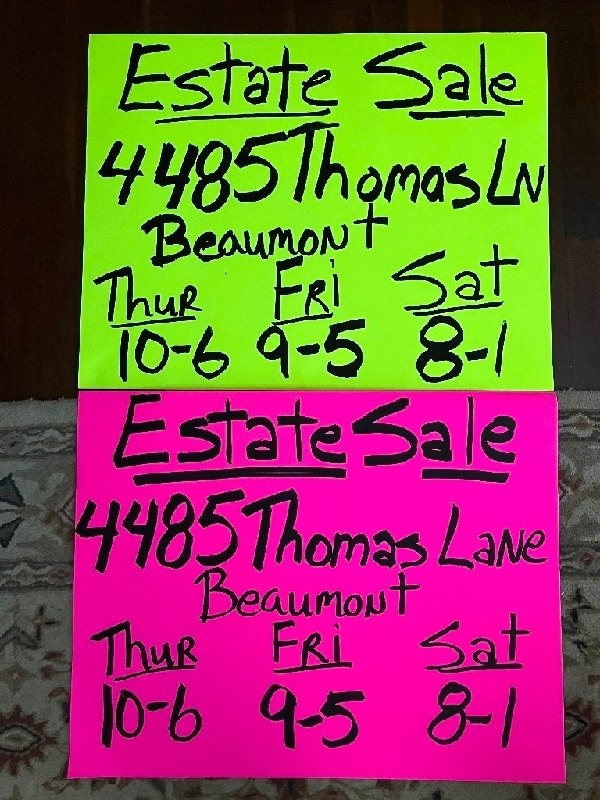 Estate Sale
4485 Thomas LN
Beaumont
Thur Fri Sat
10-6 9-5 8-1
Estate Sale
4485 Thomas Lane
Beaumont
Thur Fri Sat
10-6 9-5 8-1